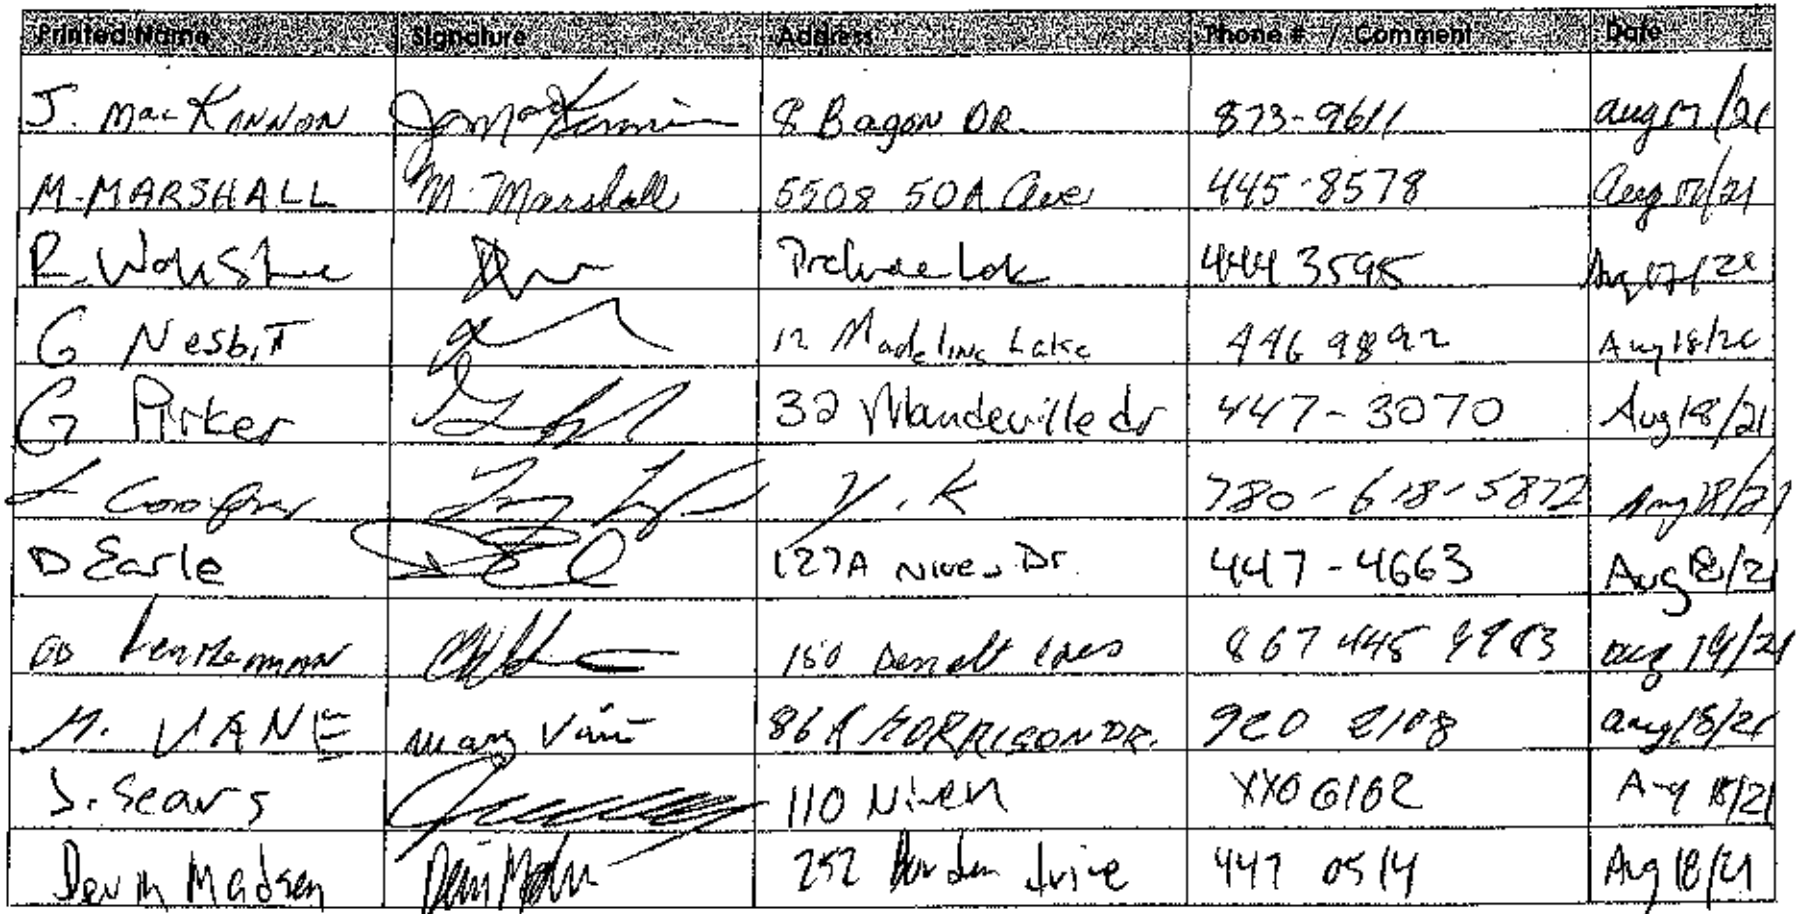 Printed Name Signature Address Phone # / Comment Date
J. MacKinnon 8 Bagon DR. 873-9611 Aug 17/21
M. MARSHALL M. Marshall 5508 50A Ave 445-8578 Aug 17/21
R. Prelude Lake 444 3595 Aug 17/21
G Nesbitt 12 Madeline Lake 446 9892 Aug 18/20
G Pirker 32 Mandeville dr 447-3070 Aug 18/21
L Cooper Y.K 780-618-5872 Aug 18/21
D Earle 127A Niven Dr. 447-4663 Aug 18/21
150 867 445 Aug 19/21
M. VANE Mary Vane 86A MORRISON DR. 920 2108 Aug 18/21
J. Sears 110 Niven XX0 6162 Aug 18/21
Devin Madsen 252 Borden drive 447 0514 Aug 18/21